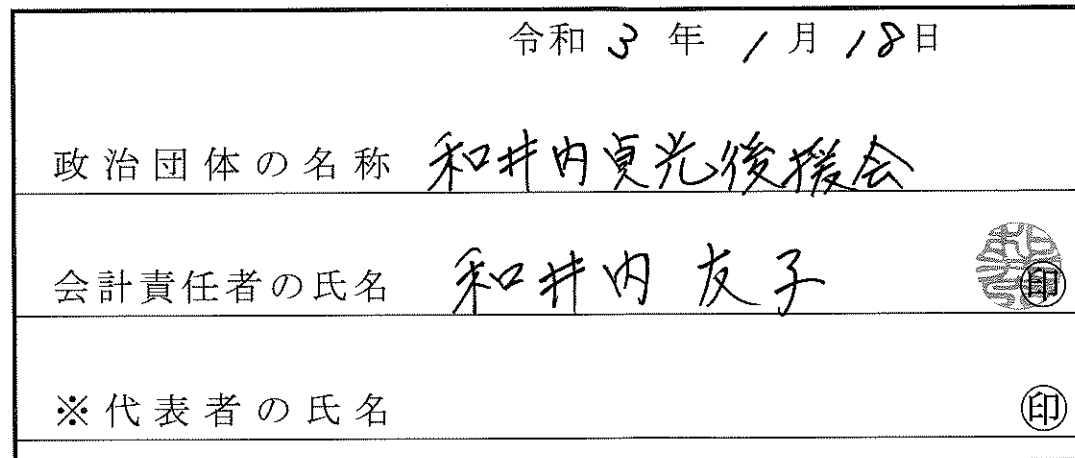 令和 3 年 1 月 18日
政治団体の名称 和井内貞光後援会
会計責任者の氏名 和井内 友子 ㊞
※代表者の氏名 ㊞